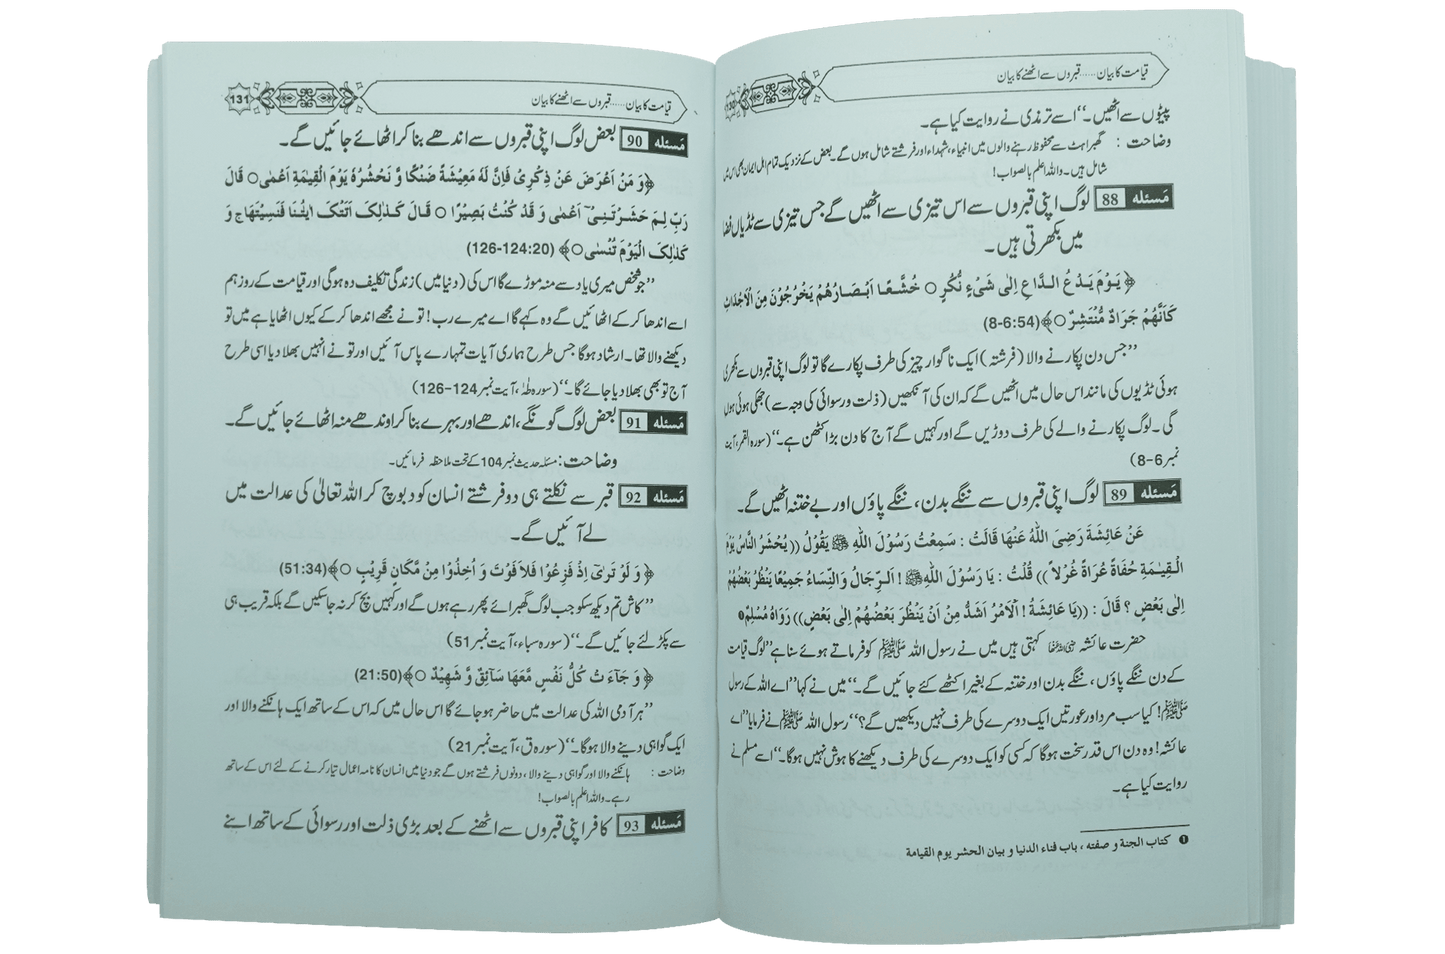 130
قیامت کا بیان......قبروں سے اٹھنے کا بیان
پیٹوں سے اٹھیں۔‘‘ اسے ترمذی نے روایت کیا ہے۔
وضاحت : گھبراہٹ سے محفوظ رہنے والوں میں انبیاء، شہداء اور فرشتے شامل ہوں گے۔ بعض کے نزدیک تمام اہل ایمان بھی اس میں
شامل ہیں۔ واللہ اعلم بالصواب!
مَسئله 88 لوگ اپنی قبروں سے اس تیزی سے اٹھیں گے جس تیزی سے ٹڈیاں فضا
میں بکھرتی ہیں۔
﴿ یَوْمَ یَدْعُ الدَّاعِ اِلٰی شَیْءٍ نُّکُرٍ ○ خُشَّعًا اَبْصَارُهُمْ یَخْرُجُوْنَ مِنَ الْاَجْدَاثِ
کَاَنَّهُمْ جَرَادٌ مُّنْتَشِرٌ ○﴾(54:6-8)
’’جس دن پکارنے والا (فرشتہ) ایک ناگوار چیز کی طرف پکارے گا تو لوگ اپنی قبروں سے بکھری
ہوئی ٹڈیوں کی مانند اس حال میں اٹھیں گے کہ ان کی آنکھیں (ذلت و رسوائی کی وجہ سے) جھکی ہوئی ہوں
گی۔ لوگ پکارنے والے کی طرف دوڑیں گے اور کہیں گے آج کا دن بڑا کٹھن ہے۔‘‘ (سورہ القمر، آیت
نمبر 6-8)
مَسئله 89 لوگ اپنی قبروں سے ننگے بدن، ننگے پاؤں اور بے ختنہ اٹھیں گے۔
عَنْ عَائِشَةَ رَضِیَ اللّٰهُ عَنْهَا قَالَتْ : سَمِعْتُ رَسُوْلَ اللّٰهِ ﷺ یَقُوْلُ (( یُحْشَرُ النَّاسُ یَوْمَ
الْقِیٰمَةِ حُفَاةً عُرَاةً غُرْلاً )) قُلْتُ : یَا رَسُوْلَ اللّٰهِ ﷺ ! اَلرِّجَالُ وَالنِّسَاءُ جَمِیْعًا یَنْظُرُ بَعْضُهُمْ
اِلٰی بَعْضٍ ؟ قَالَ : (( یَا عَائِشَةُ ! اَلْاَمْرُ اَشَدُّ مِنْ اَنْ یَنْظُرَ بَعْضُهُمْ اِلٰی بَعْضٍ )) رَوَاهُ مُسْلِمٌ❶
حضرت عائشہ رضی اللہ عنہا کہتی ہیں میں نے رسول اللہ ﷺ کو فرماتے ہوئے سنا ہے ’’لوگ قیامت
کے دن ننگے پاؤں، ننگے بدن اور ختنہ کے بغیر اکٹھے کئے جائیں گے۔‘‘ میں نے کہا ’’اے اللہ کے رسول
ﷺ! کیا سب مرد اور عورتیں ایک دوسرے کی طرف نہیں دیکھیں گے؟‘‘ رسول اللہ ﷺ نے فرمایا ’’اے
عائشہ! وہ دن اس قدر سخت ہوگا کہ کسی کو ایک دوسرے کی طرف دیکھنے کا ہوش نہیں ہوگا۔‘‘ اسے مسلم نے
روایت کیا ہے۔
❶ کتاب الجنة و صفته ، باب فناء الدنیا و بیان الحشر یوم القیامة
131
قیامت کا بیان......قبروں سے اٹھنے کا بیان
مَسئله 90 بعض لوگ اپنی قبروں سے اندھے بنا کر اٹھائے جائیں گے۔
﴿وَ مَنْ اَعْرَضَ عَنْ ذِکْرِیْ فَاِنَّ لَهٗ مَعِیْشَةً ضَنْکًا وَّ نَحْشُرُهٗ یَوْمَ الْقِیٰمَةِ اَعْمٰی○ قَالَ
رَبِّ لِمَ حَشَرْتَنِیْ اَعْمٰی وَ قَدْ کُنْتُ بَصِیْرًا ○ قَالَ کَذٰلِکَ اَتَتْکَ اٰیٰتُنَا فَنَسِیْتَهَا ج وَ
کَذٰلِکَ الْیَوْمَ تُنْسٰی○﴾ (20:124-126)
’’جو شخص میری یاد سے منہ موڑے گا اس کی (دنیا میں) زندگی تکلیف دہ ہوگی اور قیامت کے روز ہم
اسے اندھا کر کے اٹھائیں گے وہ کہے گا اے میرے رب! تو نے مجھے اندھا کر کے کیوں اٹھایا ہے میں تو
دیکھنے والا تھا۔ ارشاد ہوگا جس طرح ہماری آیات تمہارے پاس آئیں اور تو نے انہیں بھلا دیا اسی طرح
آج تو بھی بھلا دیا جائے گا۔‘‘ (سورہ طٰہٰ، آیت نمبر 124-126)
مَسئله 91 بعض لوگ گونگے، اندھے اور بہرے بنا کر اوندھے منہ اٹھائے جائیں گے۔
وضاحت : مسئلہ حدیث نمبر 104 کے تحت ملاحظہ فرمائیں۔
مَسئله 92 قبر سے نکلتے ہی دو فرشتے انسان کو دبوچ کر اللہ تعالیٰ کی عدالت میں
لے آئیں گے۔
﴿ وَ لَوْ تَرٰی اِذْ فَزِعُوْا فَلاَ فَوْتَ وَ اُخِذُوْا مِنْ مَّکَانٍ قَرِیْبٍ ○﴾(51:34)
’’کاش تم دیکھ سکو جب لوگ گھبرائے پھر رہے ہوں گے اور کہیں بچ کر نہ جاسکیں گے بلکہ قریب ہی
سے پکڑ لئے جائیں گے۔‘‘ (سورہ سباء، آیت نمبر 51)
﴿ وَ جَآءَ تْ کُلُّ نَفْسٍ مَّعَهَا سَآئِقٌ وَّ شَهِیْدٌ ○﴾(21:50)
’’ہر آدمی اللہ کی عدالت میں حاضر ہو جائے گا اس حال میں کہ اس کے ساتھ ایک ہانکنے والا اور
ایک گواہی دینے والا ہوگا۔‘‘ (سورہ ق، آیت نمبر 21)
وضاحت : ہانکنے والا اور گواہی دینے والا، دونوں فرشتے ہوں گے جو دنیا میں انسان کا نامہ اعمال تیار کرنے کے لئے اس کے ساتھ
رہے۔ واللہ اعلم بالصواب!
مَسئله 93 کافر اپنی قبروں سے اٹھنے کے بعد بڑی ذلت اور رسوائی کے ساتھ اپنے